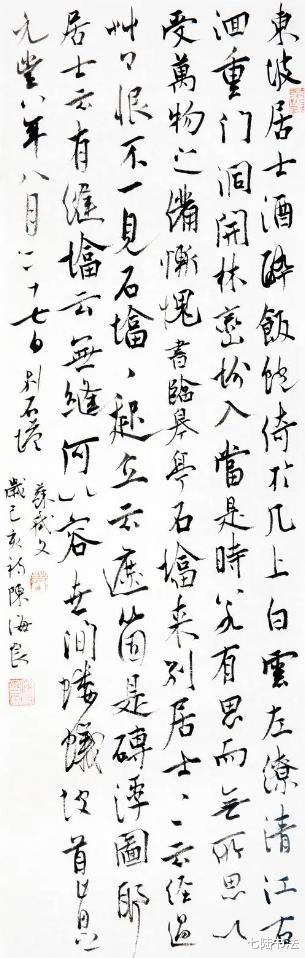 東坡居士酒醉飯飽倚於几上白雲左繚清江右
洄重门洞開林巒坌入當是時若有思而無所思以
受萬物之備慚愧書臨皋亭石墖来別居士、、云經過
艸々恨不一見石墖、起立云遮箇是磚浮圖耶
居士云有縫墖云無縫何以容世間螻蟻坡首肯
元豐八年八月二十七日別石塔
蘇軾文
歲己亥初陳海良
七陆书法